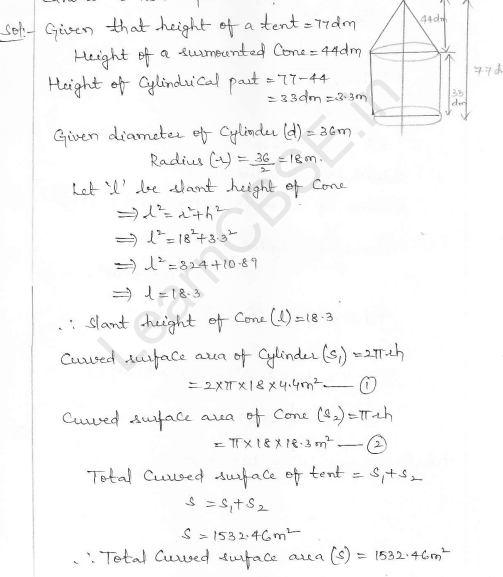 Sol:- Given that height of a tent = 77dm
Height of a surmounted Cone = 44dm
Height of Cylindrical part = 77-44
= 33dm = 3.3m
44dm
33 dm
77d
Given diameter of Cylinder (d) = 36m
Radius (r) = 36/2 = 18m.
Let 'l' be slant height of Cone
⇒ l² = r²+h²
⇒ l² = 18²+3.3²
⇒ l² = 324+10.89
⇒ l = 18.3
∴ Slant height of Cone (l) = 18.3
Curved surface area of Cylinder (S₁) = 2πrh
= 2×π×18×4.4m² — ①
Curved surface area of Cone (S₂) = πrh
= π×18×18.3m² — ②
Total Curved surface of tent = S₁+S₂
S = S₁+S₂
S = 1532.46m²
∴ Total Curved surface area (S) = 1532.46m²
LearnCBSE.in